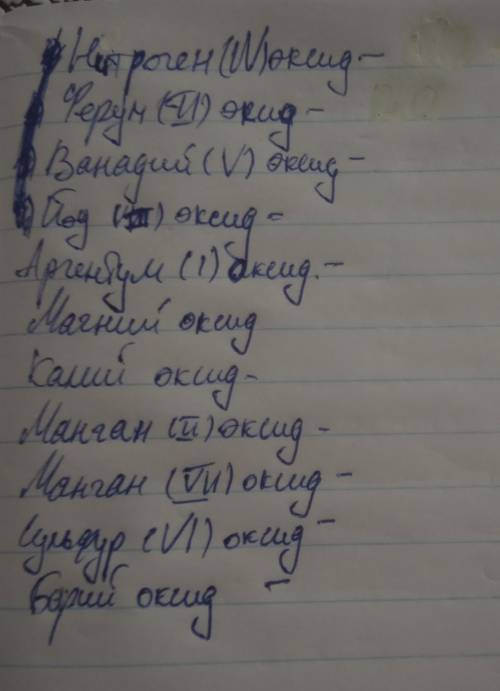 Нітроген (IV) оксид -
Ферум (VI) оксид -
Ванадий (V) оксид -
Йод (III) оксид -
Аргентум (I) оксид. -
Магний оксид
Калий оксид -
Манган (II) оксид -
Манган (VII) оксид -
Сульфур (VI) оксид -
Барий оксид -